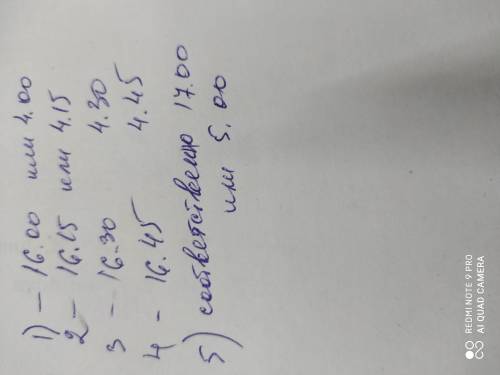 1) – 16.00 или 4.00
2 – 16.15 или 4.15
3 – 16.30 4.30
4 – 16.45 4.45
5) соответственно 17.00
или 5.00
REDMI NOTE 9 PRO
AI QUAD CAMERA